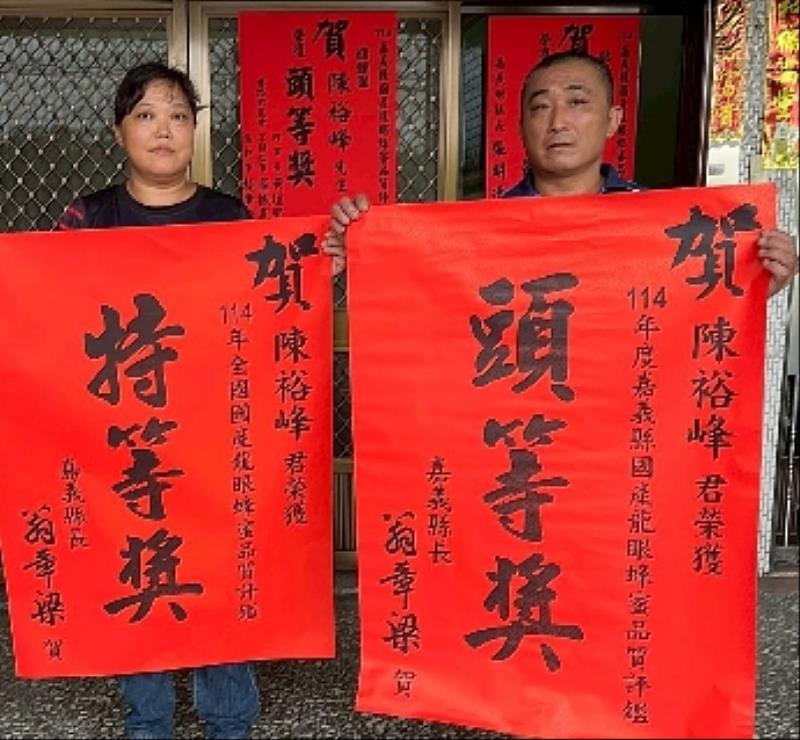 賀
陳裕峰君榮獲
114年度嘉義縣國產龍眼蜂蜜品質評鑑
頭等獎
嘉義縣長
翁章梁 賀
賀
陳裕峰君榮獲
114年全國國產龍眼蜂蜜品質評鑑
特等獎
嘉義縣長
翁章梁 賀
賀
陳裕峰先生
榮獲
頭等獎
賀